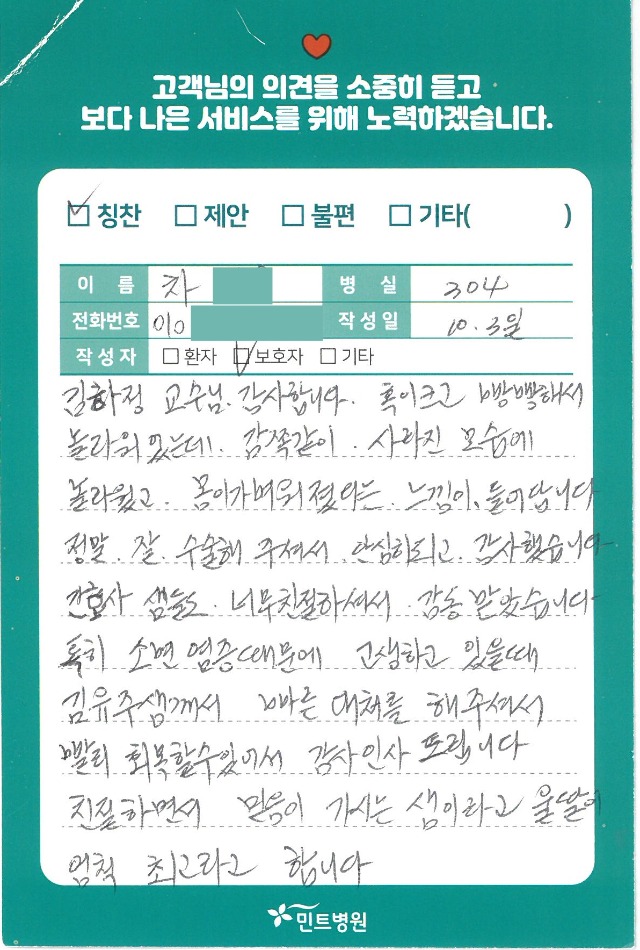 고객님의 의견을 소중히 듣고
보다 나은 서비스를 위해 노력하겠습니다.
☑ 칭찬 □ 제안 □ 불편 □ 기타( )
이 름 차 병 실 304
전화번호 010 작성일 10. 3일
작성자 □ 환자 ☑ 보호자 □ 기타
김하정 교수님. 감사합니다. 혹이크고 빵빵해서
놀라워 있는데. 감쪽같이. 사라진 모습에
놀라웠고. 몸이가벼워 졌다는. 느낌이. 들어답니다
정말. 잘. 수술해 주셔서. 안심하되고. 감사했습니다
간호사 샘들도. 너무친절하셔서. 감동 받았습니다
특히 소변 염증때문에 고생하고 있을때
김유주샘께서 빠른 대처를 해주셔서
빨리 회복할수있어서 감사인사 또립니다
친절하면서 믿음이 가시는 샘이라고 울딸이
엄척 최고라고 합니다
민트병원